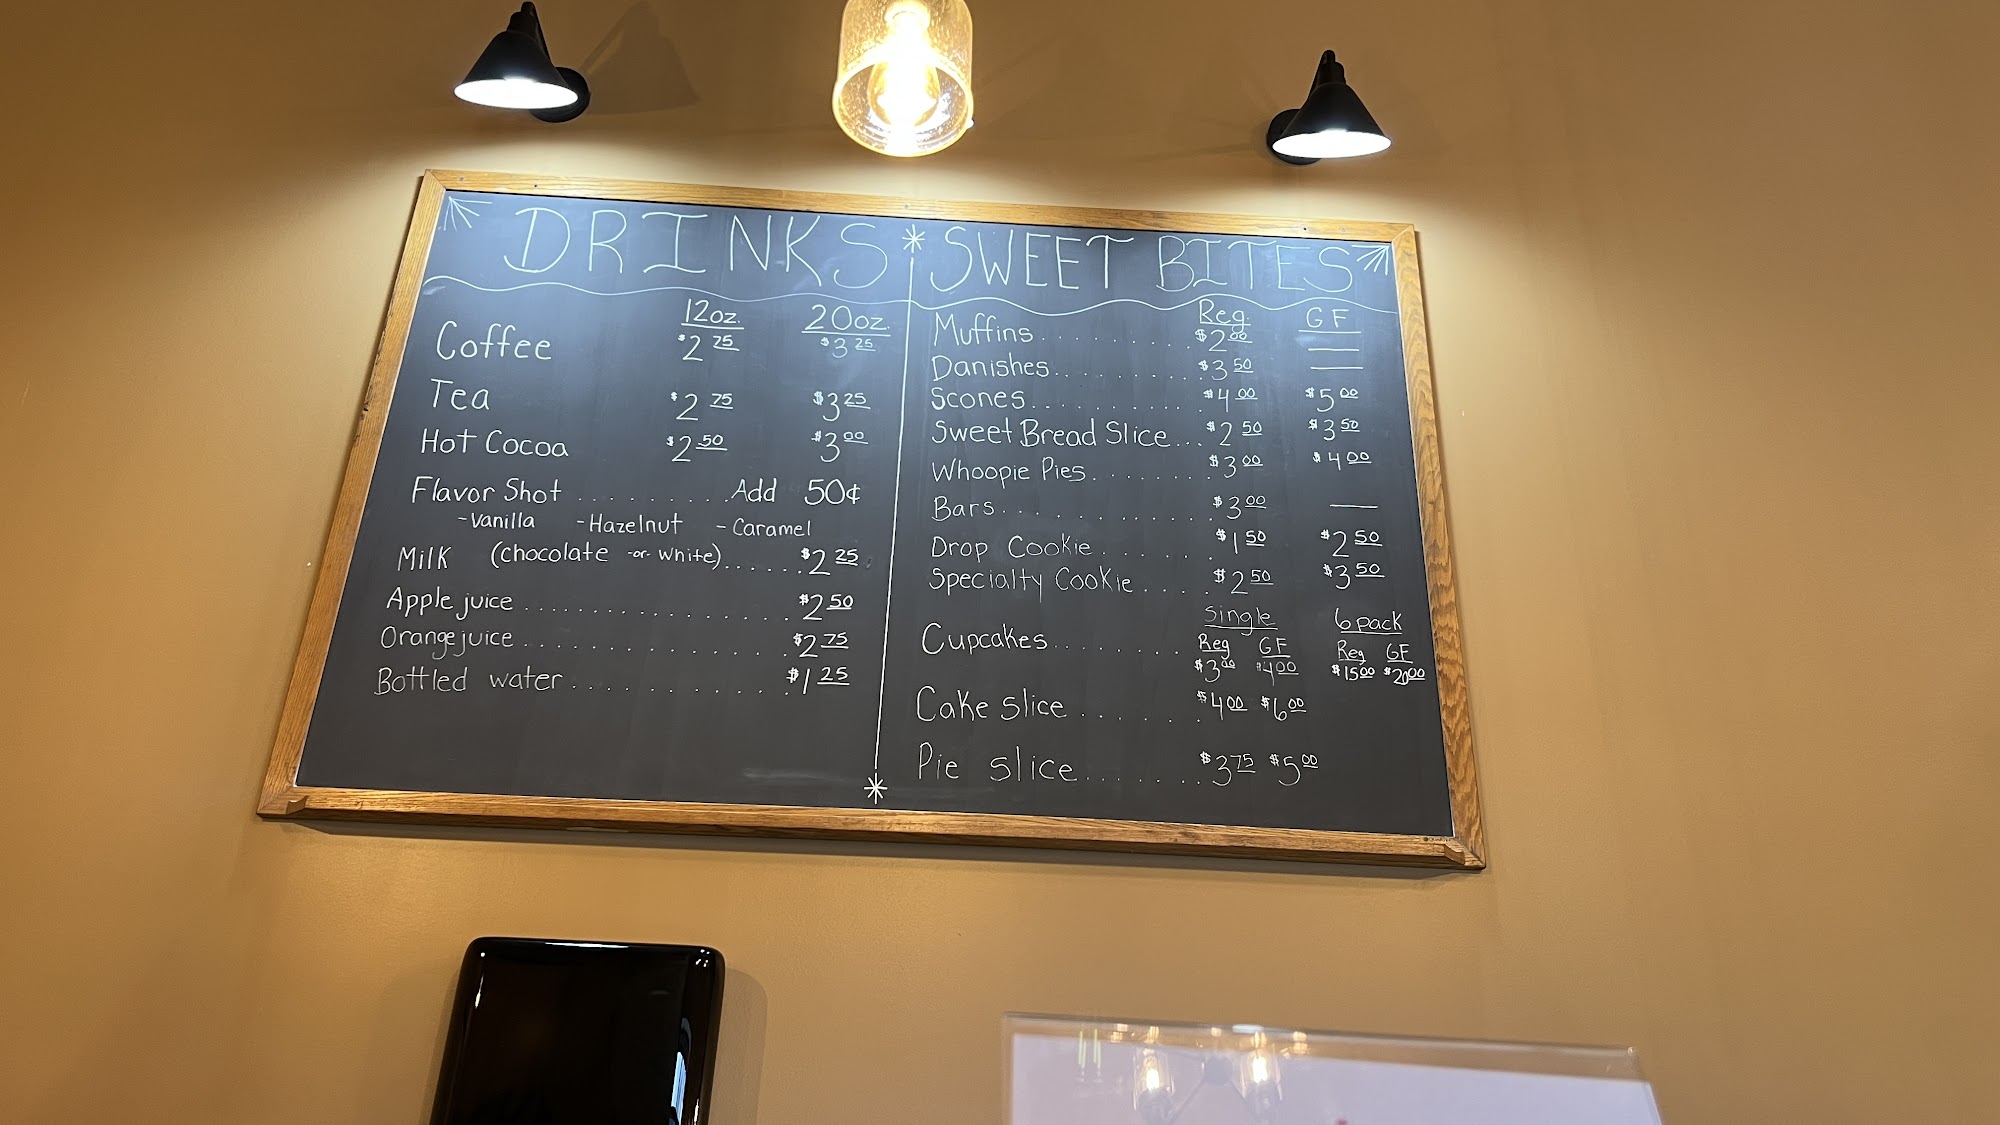 DRINKS * SWEET BITES
12oz. 20oz.
Coffee $2.75 $3.25
Tea $2.75 $3.25
Hot Cocoa $2.50 $3.00
Flavor Shot ......... Add 50¢
-Vanilla -Hazelnut -Caramel
Milk (chocolate -or- white)...... $2.25
Apple juice .............. $2.50
Orange juice .............. $2.75
Bottled water ............ $1.25
Reg. GF
Muffins ......... $2.00 —
Danishes ......... $3.50 —
Scones ........... $4.00 $5.00
Sweet Bread Slice... $2.50 $3.50
Whoopie Pies ........ $3.00 $4.00
Bars ............ $3.00 —
Drop Cookie ....... $1.50 $2.50
Specialty Cookie .... $2.50 $3.50
Single 6 pack
Cupcakes ........ Reg GF Reg GF
$3.00 $4.00 $15.00 $20.00
Cake slice ....... $4.00 $6.00
Pie slice ....... $3.75 $5.00